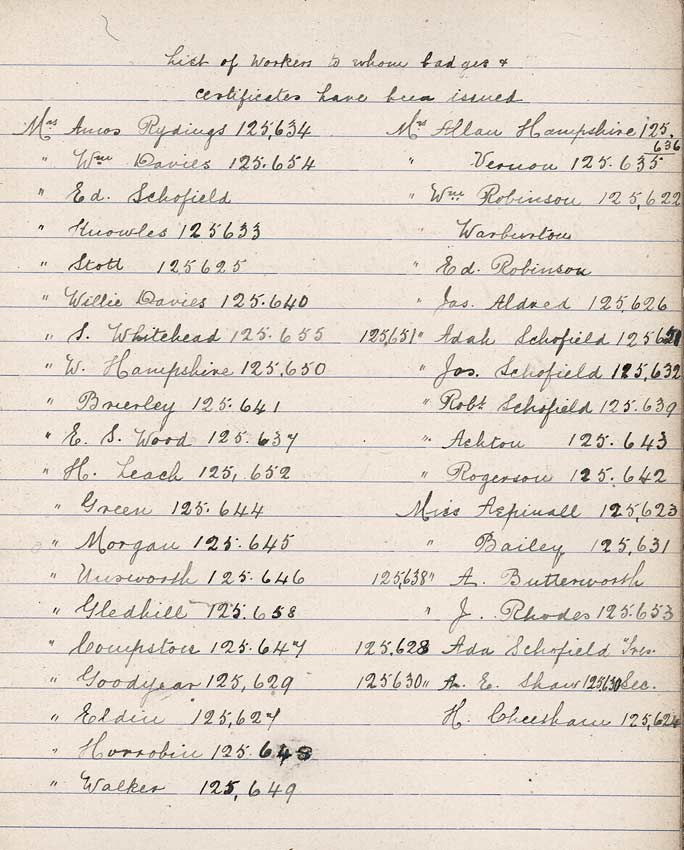 List of Workers to whom badges &
certificates have been issued
Mrs Amos Rydings 125,634
" Wm Davies 125.654
" Ed. Schofield
" Knowles 125633
" Stott 125625
" Willie Davies 125.640
" S. Whitehead 125.655
" W. Hampshire 125,650
" Brierley 125.641
" E. S. Wood 125.637
" H. Leach 125,652
" Green 125.644
" Morgan 125.645
" Unsworth 125.646
" Gledhill 125.658
" Compston 125.647
" Goodyear 125,629
" Eldin 125,627
" Horrobin 125.648
" Walker 125,649
Mrs Allan Hampshire 125.
636
" Vernon 125.635
" Wm Robinson 125,622
" Warburton
" Ed. Robinson
" Jas. Aldred 125,626
125,651 " Adah Schofield
" Jos. Schofield 125,632
" Robt Schofield 125.639
" Ashton 125.643
" Rogerson 125.642
Miss Aspinall 125,623
" Bailey 125,631
125,638 " A. Butterworth
" J. Rhodes 125.653
125,628 Ada Schofield Tres.
125630 " A. E. Shaw 125,630 Sec.
H. Cheetham 125,624